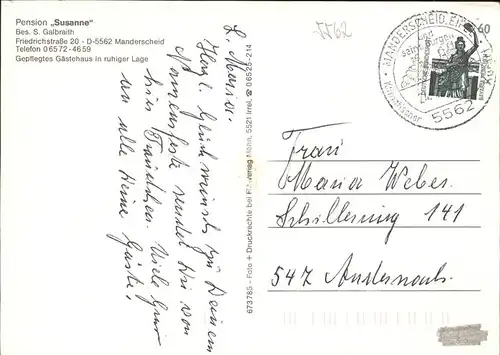 Pension „Susanne"
Bes. S. Galbraith
Friedrichstraße 20 - D-5562 Manderscheid
Telefon 06572-4659
Gepflegtes Gästehaus in ruhiger Lage
L. Maria.
Herzl. Glückwunsch zu Deinem
Namensfeste sendet Dir von
hier
Viele Grüße
an alle Deine Gäste!
673785 - Foto + Druckrechte bei Mohn, 5521 Irrel, ☎ 06525-214
MANDERSCHEID, EIFEL
5562
60
Frau
Maria Weber
Schillerring 141
547 Andernach